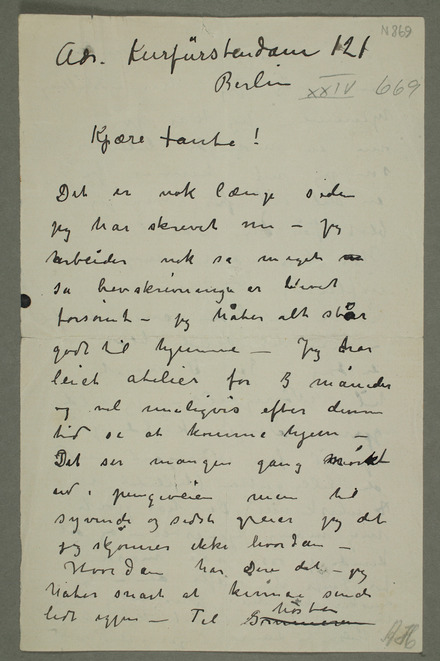 N 869
Adr. Kurfürstendam 121
Berlin
XXIV 669
Kjære tante!
Det er nok længe siden
jeg har skrevet nu – Jeg
arbeider nok så meget
så brevskrivningen er blevet
forsömt – jeg håber alt står
godt til hjemme – Jeg har
leiet atelier for 3 måneder
og vel muligvis efter denne
tid se at komme hjem –
Det ser mangen gang mörkt
ud i pengeveien men til
syvende og sidst greier jeg det
jeg skjönner ikke hvordan –
Hvordan har Dere det – jeg
håber snart at kunne sende
lidt igjen – Til hösten